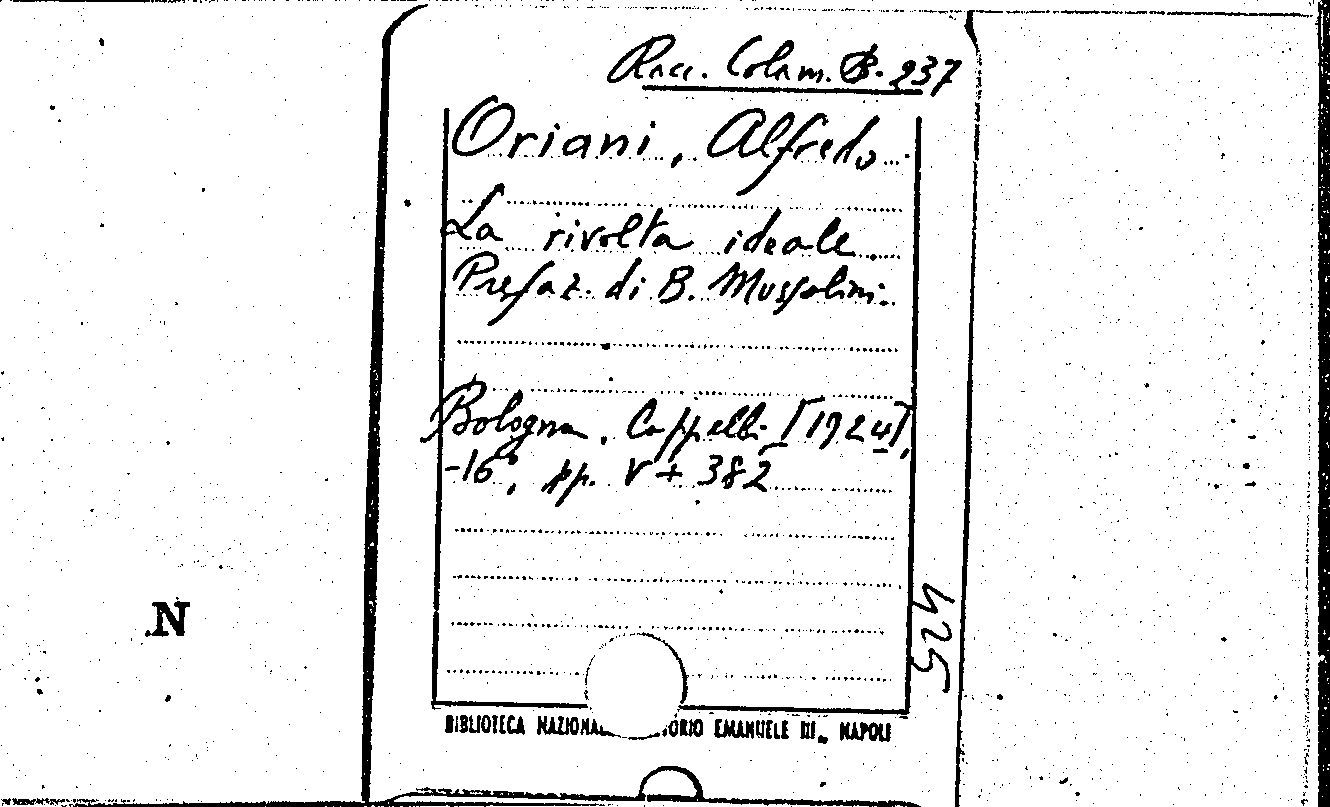 Racc. Colam. B. 237
Oriani, Alfredo
La rivolta ideale.
Prefaz. di B. Mussolini.
Bologna, Cappelli [1924],
-16°, pp. V + 382
425
N
BIBLIOTECA NAZIONA ORIO EMANUELE III - NAPOLI